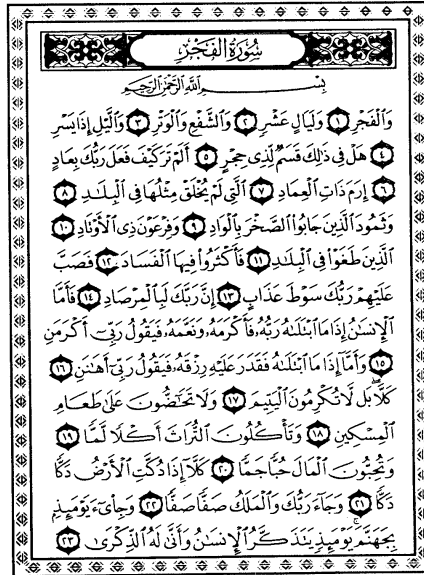 سُورَةُ الفَجْرِ
بِسْمِ اللَّهِ الرَّحْمَٰنِ الرَّحِيمِ
وَالْفَجْرِ ١ وَلَيَالٍ عَشْرٍ ٢ وَالشَّفْعِ وَالْوَتْرِ ٣ وَالَّيْلِ إِذَا يَسْرِ
٤ هَلْ فِي ذَٰلِكَ قَسَمٌ لِّذِي حِجْرٍ ٥ أَلَمْ تَرَ كَيْفَ فَعَلَ رَبُّكَ بِعَادٍ
٦ إِرَمَ ذَاتِ الْعِمَادِ ٧ الَّتِي لَمْ يُخْلَقْ مِثْلُهَا فِي الْبِلَٰدِ ٨
وَثَمُودَ الَّذِينَ جَابُوا الصَّخْرَ بِالْوَادِ ٩ وَفِرْعَوْنَ ذِي الْأَوْتَادِ ١٠
الَّذِينَ طَغَوْا فِي الْبِلَٰدِ ١١ فَأَكْثَرُوا فِيهَا الْفَسَادَ ١٢ فَصَبَّ
عَلَيْهِمْ رَبُّكَ سَوْطَ عَذَابٍ ١٣ إِنَّ رَبَّكَ لَبِالْمِرْصَادِ ١٤ فَأَمَّا
الْإِنسَٰنُ إِذَا مَا ابْتَلَىٰهُ رَبُّهُ فَأَكْرَمَهُ وَنَعَّمَهُ فَيَقُولُ رَبِّي أَكْرَمَنِ
١٥ وَأَمَّا إِذَا مَا ابْتَلَىٰهُ فَقَدَرَ عَلَيْهِ رِزْقَهُ فَيَقُولُ رَبِّي أَهَٰنَنِ ١٦
كَلَّا بَل لَّا تُكْرِمُونَ الْيَتِيمَ ١٧ وَلَا تَحَٰضُّونَ عَلَىٰ طَعَامِ
الْمِسْكِينِ ١٨ وَتَأْكُلُونَ التُّرَاثَ أَكْلًا لَّمًّا ١٩
وَتُحِبُّونَ الْمَالَ حُبًّا جَمًّا ٢٠ كَلَّا إِذَا دُكَّتِ الْأَرْضُ دَكًّا
دَكًّا ٢١ وَجَاءَ رَبُّكَ وَالْمَلَكُ صَفًّا صَفًّا ٢٢ وَجِاْيٓءَ يَوْمَئِذٍ
بِجَهَنَّمَ يَوْمَئِذٍ يَتَذَكَّرُ الْإِنسَٰنُ وَأَنَّىٰ لَهُ الذِّكْرَىٰ ٢٣